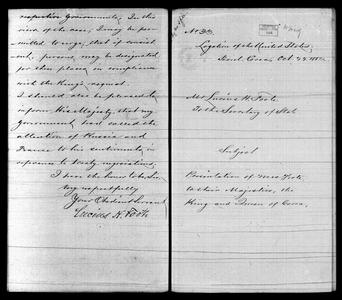 respective Governments. In this
view of the case, I may be per-
mitted to urge, that if consist-
ent, persons may be designated
for this place, in compliance
with the King's request.
I should also be pleased to
inform His Majesty, that my
Government, had called the
attention of Russia and
France to his sentiments, in
reference to treaty negotiations.
I have the honor to be, Sir
Very respectfully
Your Obedient Servant
Lucius H. Foote
Legation of the United States,
Seoul Corea, Oct
Mr Lucius H. Foote
To the Secretary of State
Subject
Presentation of Mrs Foote
to their Majesties, the
King and Queen of Corea.